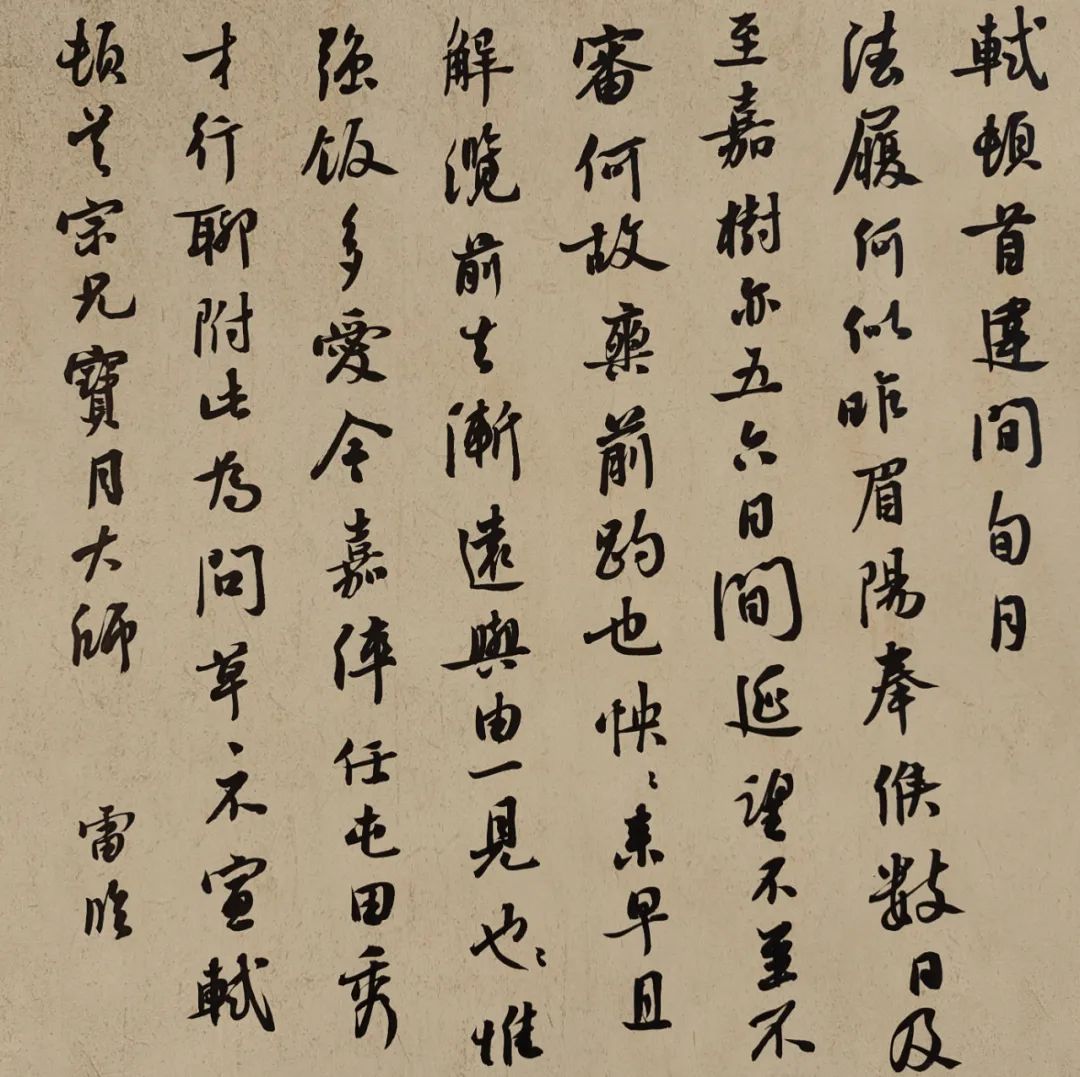 軾頓首違間旬月
法履何似昨眉陽奉候數日及
至嘉樹亦五六日間延望不至不
審何故爽前約也怏〻來早且
解纜前去漸遠與由一見也〻惟
强飯多愛今嘉倅任屯田秀
才行聊附此為問草〻不宣軾
頓首宗兄寶月大師
雷臨